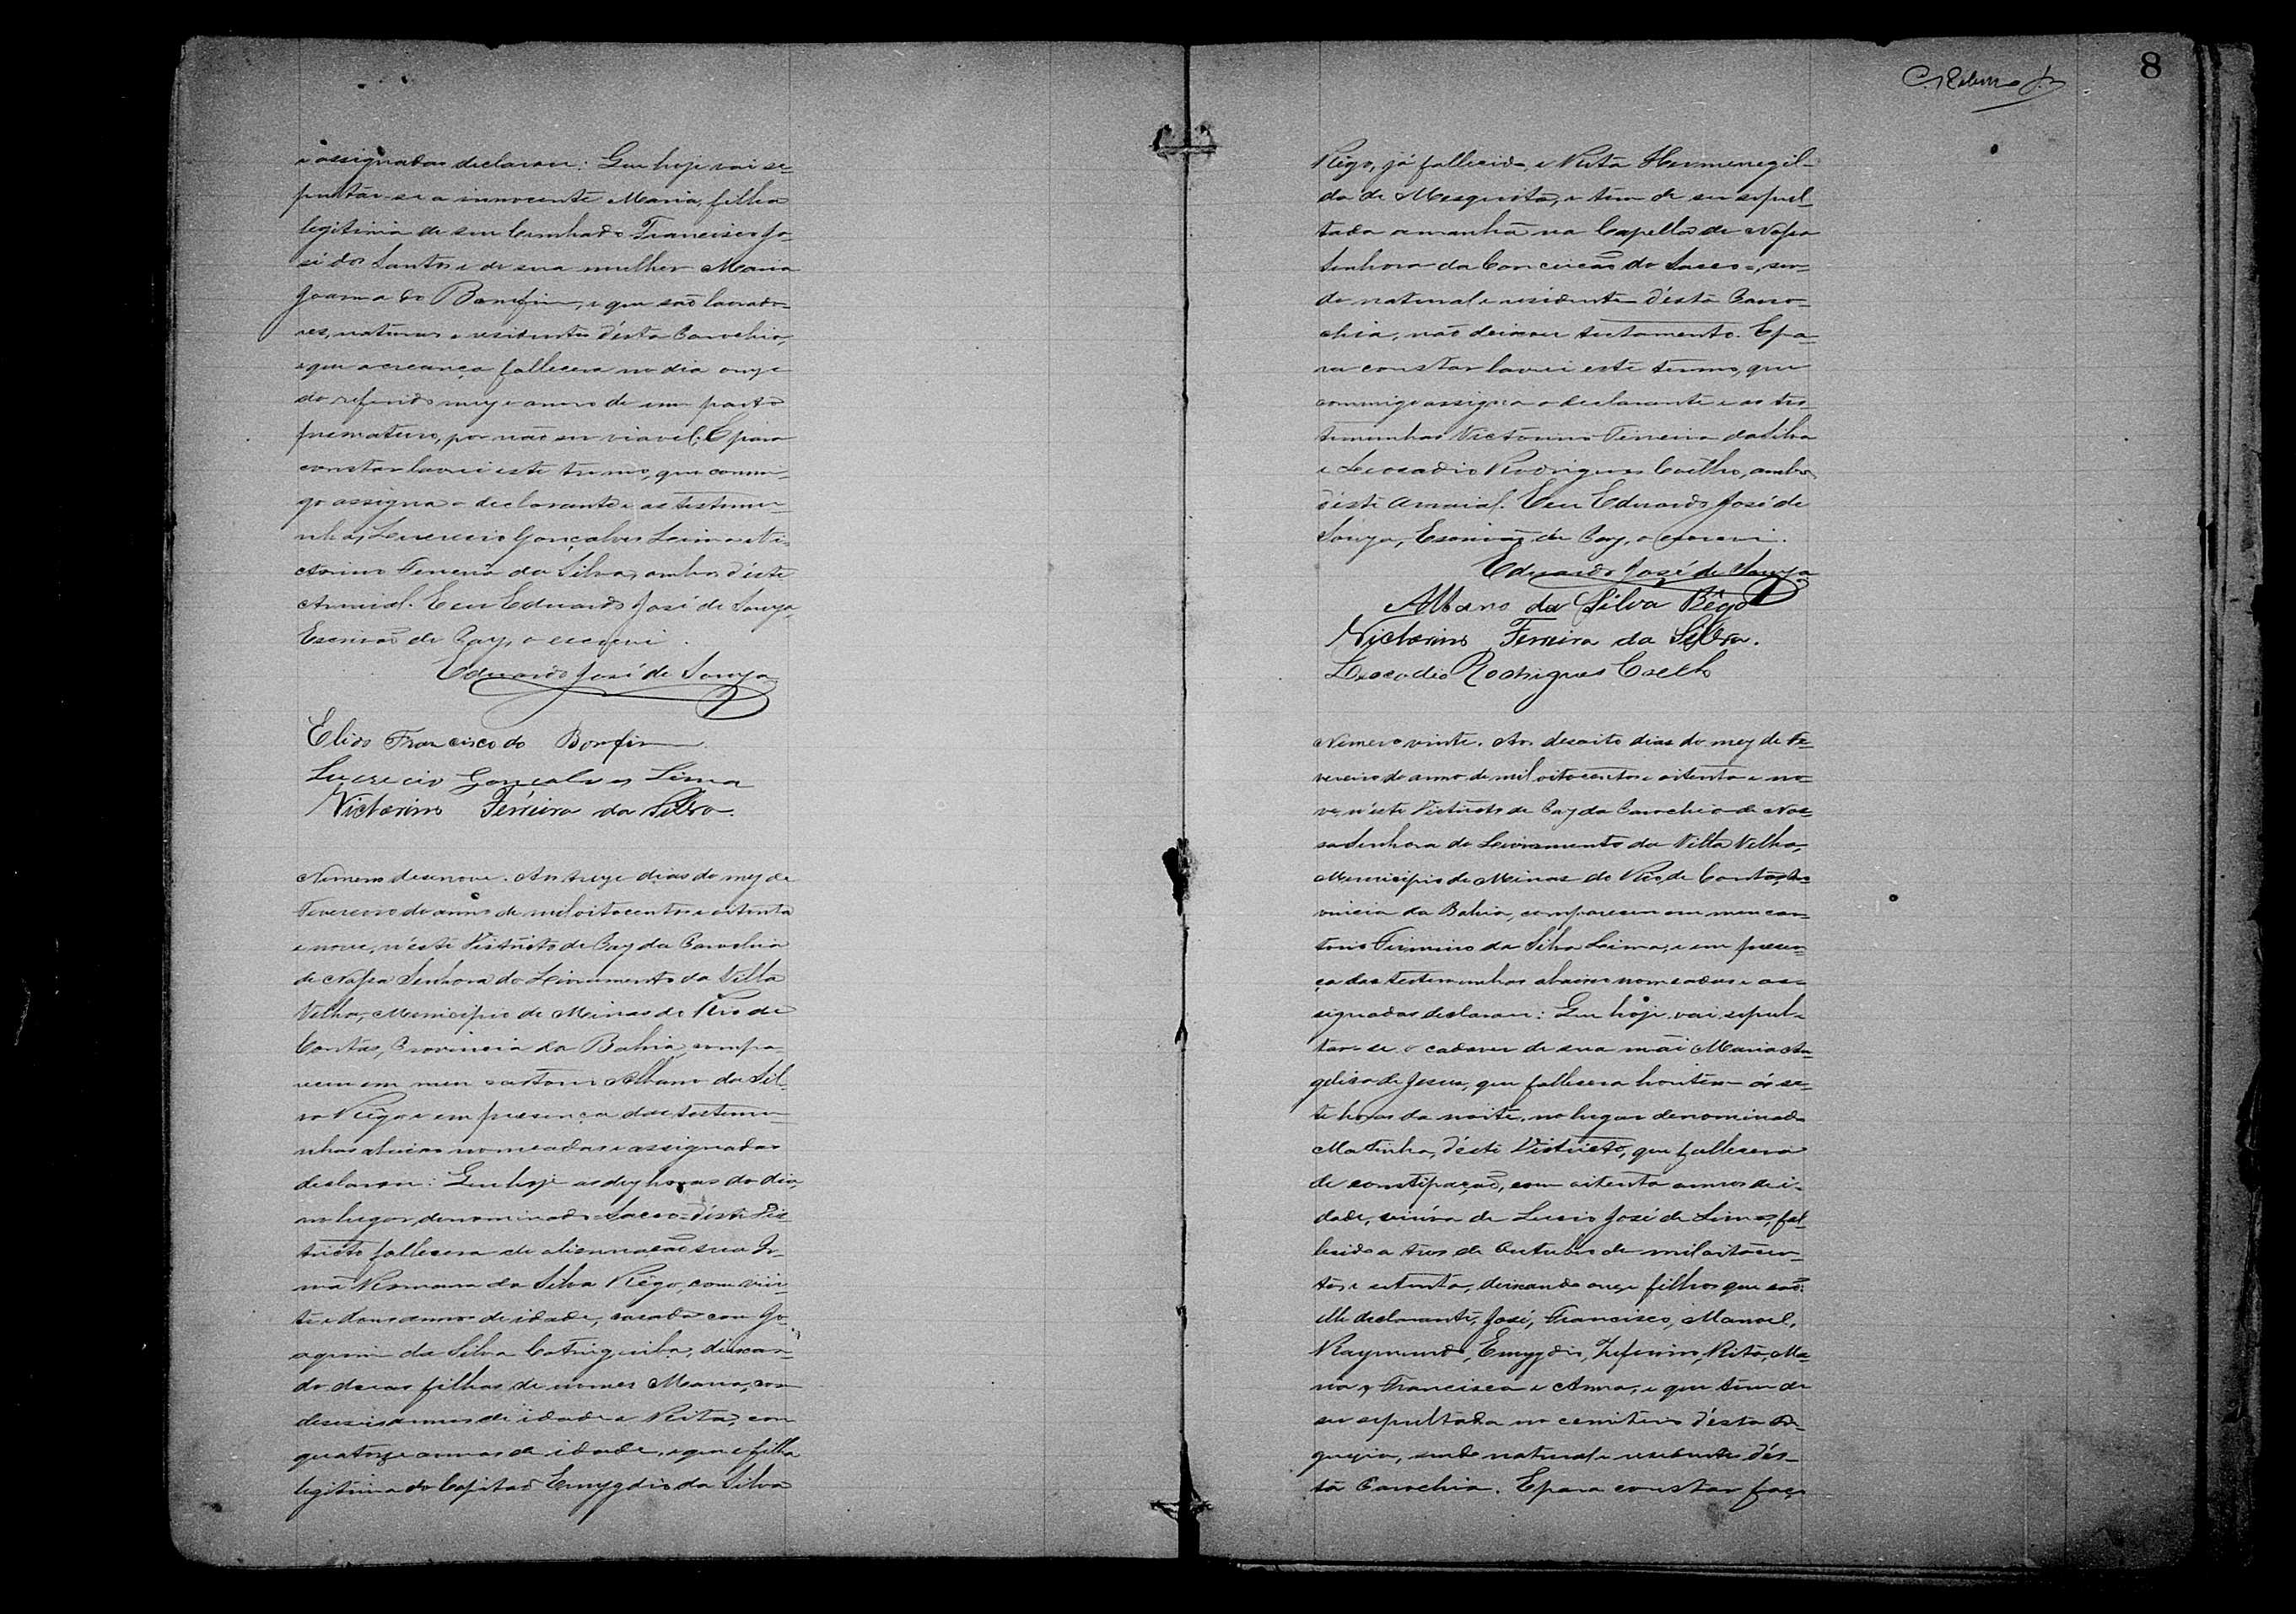 e assignadas declarou: Que hoje vai se-
pultar-se a innocente Maria, filha
legitima de seu Cunhado Francisco Jo-
sé dos Santos e de sua mulher Maria
Joanna do Bomfim, e que são lavrado-
res, naturaes e residentes d'esta Parochia,
e que a creança fallecera no dia onze
do referido mez e anno de um parto
prematuro, por não ser viavel. E para
constar lavrei este termo, que commi-
go assigna o declarante e as testemu-
nhas, Lucrecio Gonçalves Lima e Vi-
ctorino Ferreira da Silva, ambos d'este
Arraial. E eu Eduardo José de Souza,
Escrivão de Paz, o escrevi.
Eduardo José de Souza
Francisco do Bomfim
Lucrecio Gonçalves Lima
Victorino Ferreira da Silva.
Numero desenove. Aos treze dias do mez de
Fevereiro do anno de mil oitocentos e oitenta
e nove, n'este Districto de Paz da Parochia
de Nossa Senhora do Livramento da Villa
Velha, Municipio de Minas do Rio de
Contas, Provincia da Bahia, compa-
receu em meu cartorio Albano da Sil-
va Rêgo e em presença das testemu-
nhas abaixo nomeadas e assignadas
declarou: Que hoje as dez horas do dia,
no lugar denominado Sacco d'este Dis-
tricto fallecera de alienação sua Ir-
mã Romana da Silva Rêgo, com vin-
te e dous annos de idade, casada com Jo-
aquim da Silva Catinguiba, deixan-
do duas filhas de nomes Maria, com
deseseis annos de idade e Rita, com
quatorze annos de idade, e que é filha
legitima do Capitão Emygdio da Silva
8
Rêgo, já fallecido e Rita Hermenegil-
da de Mesquita, e tem de ser sepul-
tada amanhã na Capella de Nossa
Senhora da Conceicão do Sacco, sen-
do natural e residente d'esta Paro-
chia, não deixou testamento. E pa-
ra constar lavrei este termo, que
commigo assigna o declarante e as tes-
temunhas Victorino Ferreira da Silva
e Leocadio Rodrigues Coelho, ambos
d'este Arraial. E eu Eduardo José de
Souza, Escrivão de Paz, o escrevi.
Eduardo José de Souza
Albano da Silva Rêgo
Victorino Ferreira da Silva.
Leocadio Rodrigues Coelho
Numero vinte. Aos desoito dias do mez de Fe-
vereiro do anno de mil oitocentos e oitenta e no-
ve, n'este Districto de Paz da Parochia de Nos-
sa Senhora do Livramento da Villa Velha,
Municipio de Minas do Rio de Contas, Pro-
vincia da Bahia, compareceu em meu car-
torio Firmino da Silva Lima, e em presen-
ça das testemunhas abaixo nomeadas e as-
signadas declarou: Que hoje vai sepul-
tar-se o cadaver de sua mãi Maria An-
gelica de Jesus, que fallecera hontem ás se-
te horas da noite, no lugar denominado
Matinha, d'este Districto, que fallecera
de constipação, com oitenta annos de i-
dade, viuva de Lucio José de Lima, fal-
lecido a tres de Outubro de mil oitocen-
tos e setenta, deixando onze filhos que são:
elle declarante, José, Francisco, Manoel,
Raymundo, Emygdio, Zeferino, Rita, Ma-
ria, Francisca e Anna, e que tem de
ser sepultada no cemiterio d'esta Fre-
guezia, sendo natural e residente d'es-
ta Parochia. E para constar faço